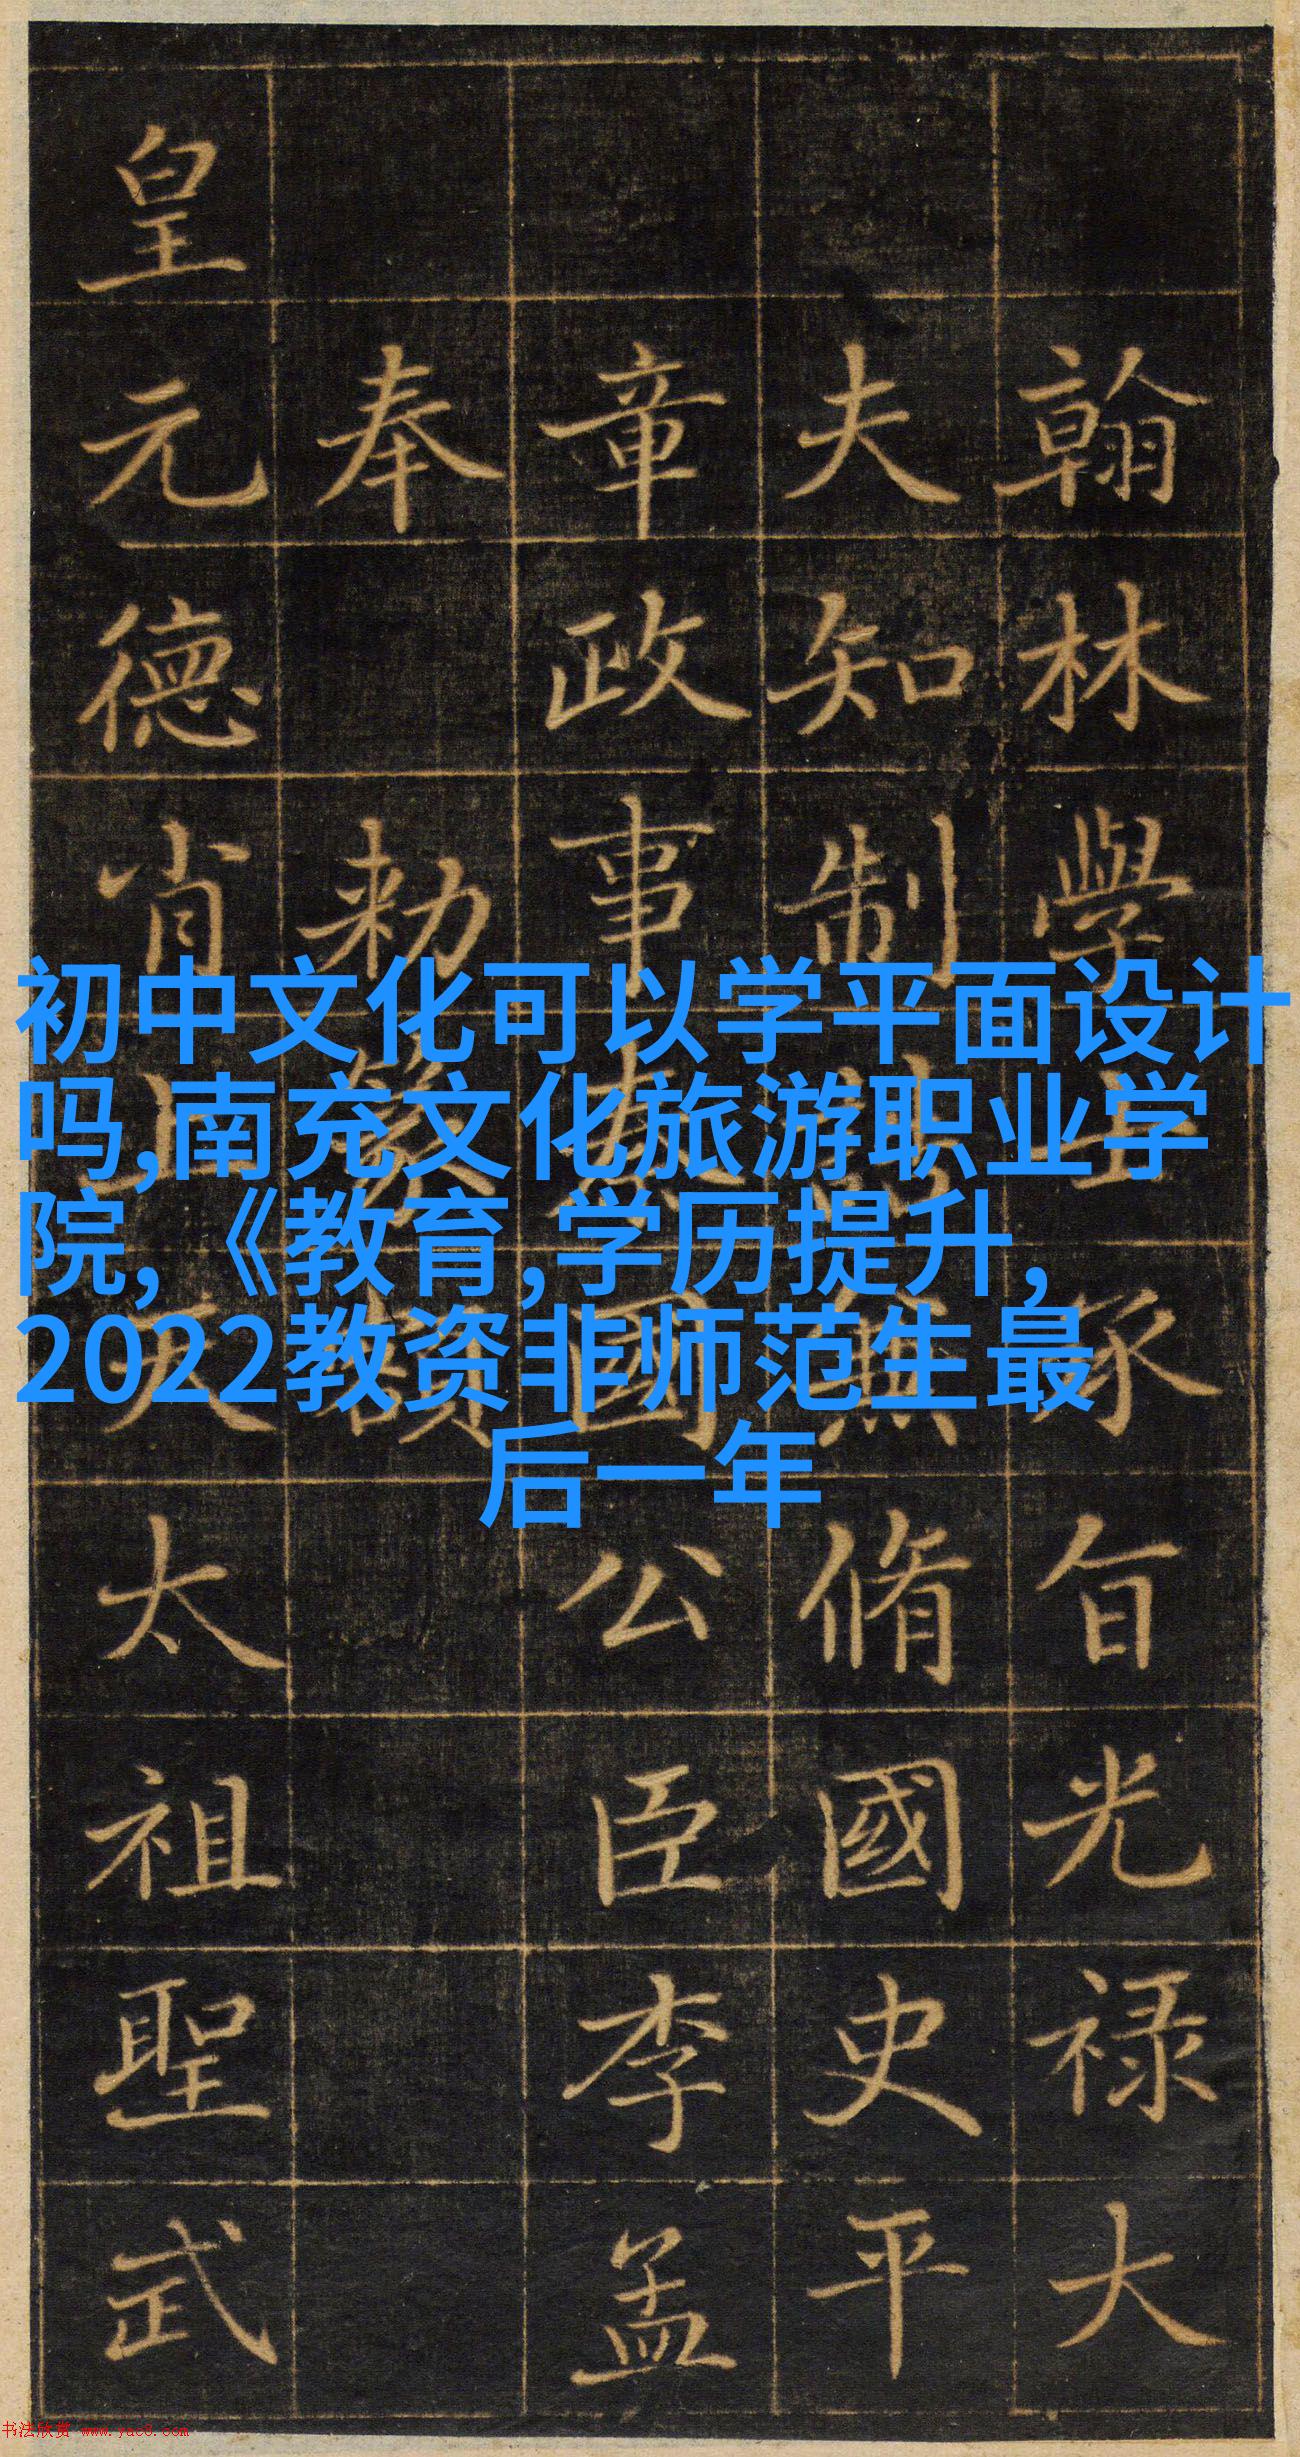 初中文化可以学平面设计
吗,南充文化旅游职业学
院,《教育,学历提升,
2022教资非师范生最
后一年
翰林學士承旨光禄大
夫知制誥兼脩國史平
章政事秦國公臣李孟
奉勅篆額
皇元德肖上天太祖聖武
书法欣赏 www.yac8.com